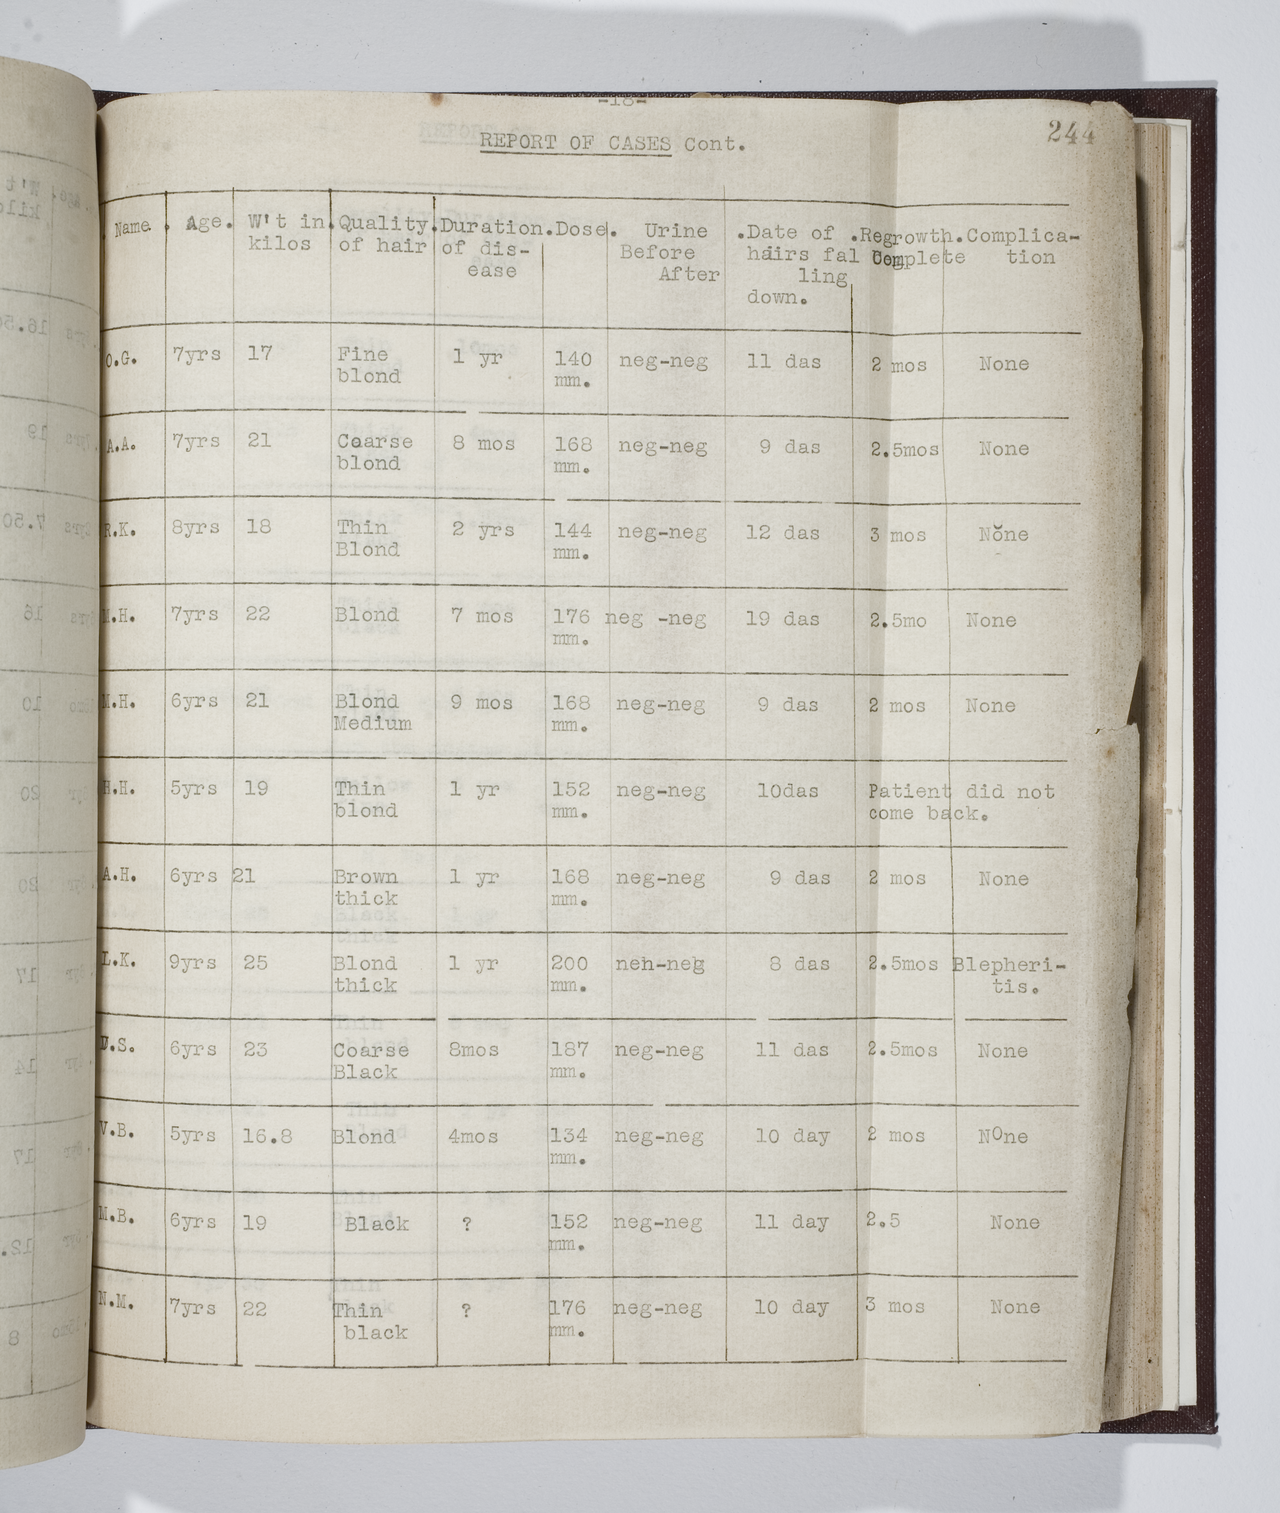 -18-
244
REPORT OF CASES Cont.
Name. Age. W't in Quality Duration. Dose. Urine .Date of .Regrowth. Complica-
kilos of hair of dis- Before hairs fal Complete tion
ease After ling
down.
O.G. 7yrs 17 Fine 1 yr 140 neg-neg 11 das 2 mos None
blond mm.
A.A. 7yrs 21 Coarse 8 mos 168 neg-neg 9 das 2.5mos None
blond mm.
R.K. 8yrs 18 Thin 2 yrs 144 neg-neg 12 das 3 mos None
Blond mm.
H.H. 7yrs 22 Blond 7 mos 176 neg -neg 19 das 2.5mo None
mm.
M.H. 6yrs 21 Blond 9 mos 168 neg-neg 9 das 2 mos None
Medium mm.
H.H. 5yrs 19 Thin 1 yr 152 neg-neg 10das Patient did not
blond mm. come back.
A.H. 6yrs 21 Brown 1 yr 168 neg-neg 9 das 2 mos None
thick mm.
L.K. 9yrs 25 Blond 1 yr 200 neh-neg 8 das 2.5mos Blepheri-
thick mm. tis.
.S. 6yrs 23 Coarse 8mos 187 neg-neg 11 das 2.5mos None
Black mm.
V.B. 5yrs 16.8 Blond 4mos 134 neg-neg 10 day 2 mos NOne
mm.
M.B. 6yrs 19 Black ? 152 neg-neg 11 day 2.5 None
mm.
N.M. 7yrs 22 Thin ? 176 neg-neg 10 day 3 mos None
black mm.